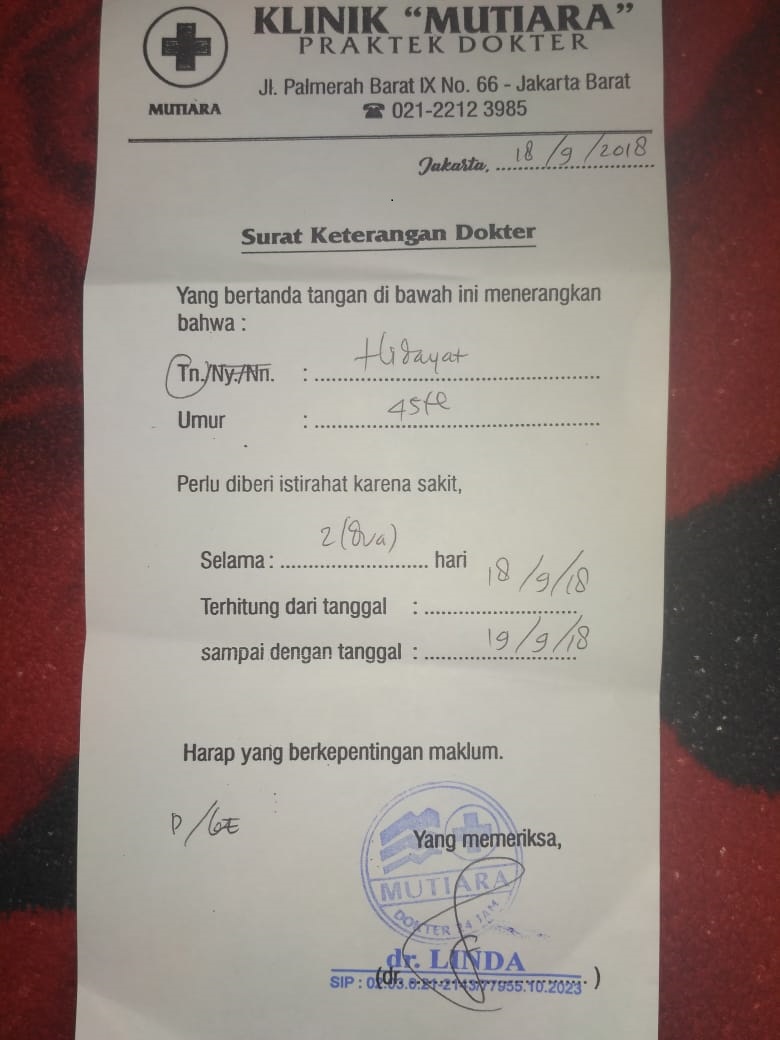 KLINIK “MUTIARA”
PRAKTEK DOKTER
MUTIARA
Jl. Palmerah Barat IX No. 66 - Jakarta Barat
☎ 021-2212 3985
Jakarta, 18/9/2018
Surat Keterangan Dokter
Yang bertanda tangan di bawah ini menerangkan
bahwa :
Tn./Ny./Nn. : Hidayat
Umur : 45th
Perlu diberi istirahat karena sakit,
Selama : 2 (dua) hari
Terhitung dari tanggal : 18/9/18
sampai dengan tanggal : 19/9/18
Harap yang berkepentingan maklum.
D/GE
Yang memeriksa,
MUTIARA
DOKTER 24 JAM
dr. LINDA
(dr. )
SIP :